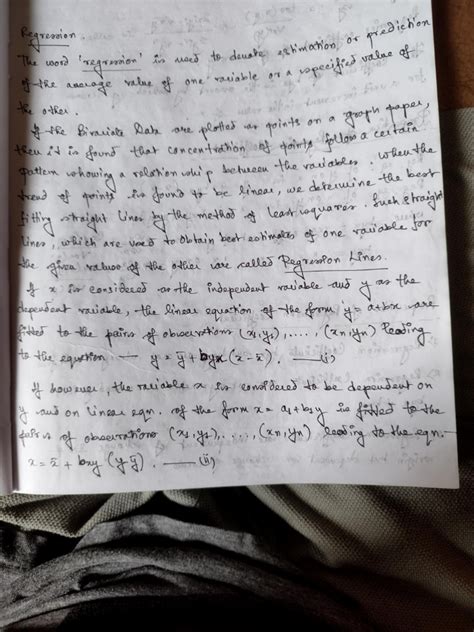 Regression.
The word 'regression' is used to denote estimation or prediction
of the average value of one variable or a specified value of
the other.
If the Bivariate Data are plotted as points on a graph paper,
then it is found that concentration of points follow a certain
pattern showing a relationship between the variables. When the
trend of points is found to be linear, we determine the best
fitting straight lines by the method of least squares. Such straight
lines, which are used to obtain best estimates of one variable for
the given values of the other are called Regression Lines.
If x is considered as the independent variable and y as the
dependent variable, the linear equation of the form y = a+bx are
fitted to the pairs of observations (x₁,y₁), ...., (xn,yn) leading
to the equation — y = ȳ + byx (x-x̄). — (i)
If however, the variable x is considered to be dependent on
y and on linear eqn. of the form x = a₁+b₁y is fitted to the
pairs of observations (x₁,y₁), ...., (xn,yn) leading to the eqn.-
x = x̄ + bxy (y-ȳ). — (ii)